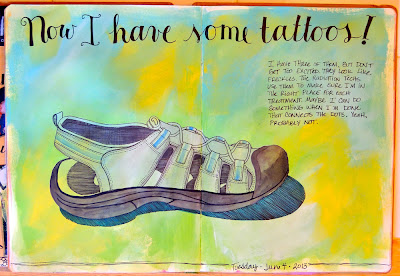 Now I have some tattoos!
I HAVE THREE OF THEM, BUT DON'T
GET TOO EXCITED. THEY LOOK LIKE
FRECKLES. THE RADIATION TECHS
USE THEM TO MAKE SURE I'M IN
THE RIGHT PLACE FOR EACH
TREATMENT. MAYBE I CAN DO
SOMETHING WHEN I'M DONE
THAT CONNECTS THE DOTS. YEAH,
PROBABLY NOT.
Tuesday - June 4 - 2013